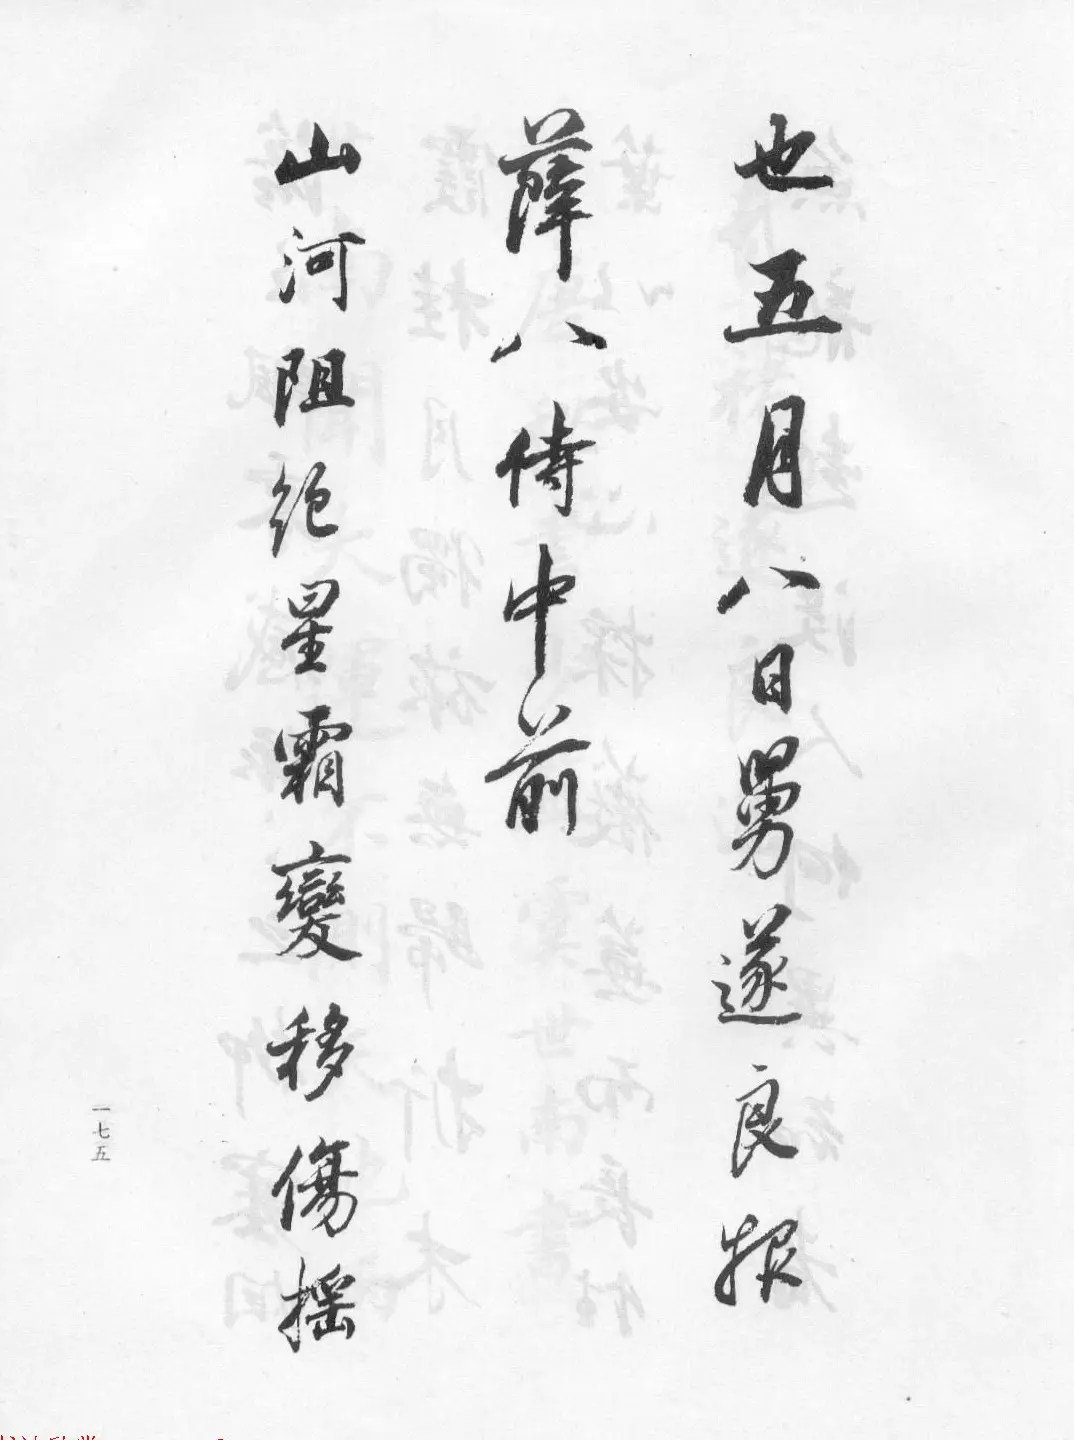 也五月八日舅遂良报
薛八侍中前
山河阻绝星霜變移傷摇
一七五